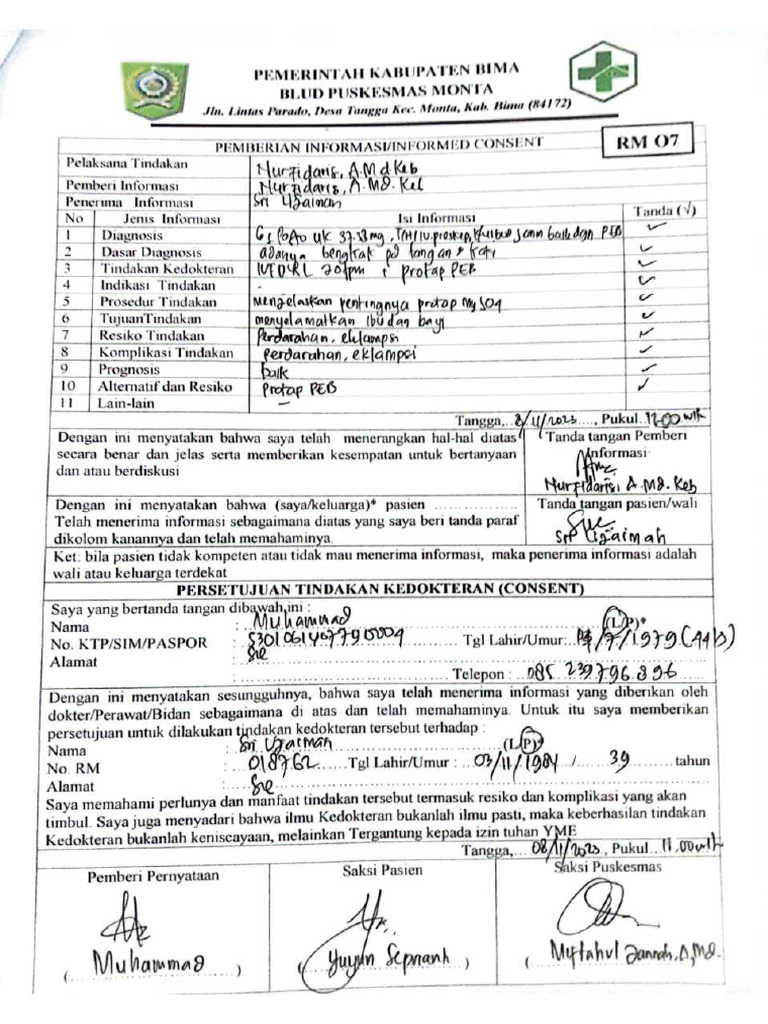 PEMERINTAH KABUPATEN BIMA
BLUD PUSKESMAS MONTA
Jln. Lintas Parado, Desa Tangga Kec. Monta, Kab. Bima (84172)
PEMBERIAN INFORMASI/INFORMED CONSENT
RM O7
Pelaksana Tindakan Nurfidaris, A.Md Keb
Pemberi Informasi Nurfidaris, A.Md. Keb
Penerima Informasi Sri Uzaimah
No Jenis Informasi Isi Informasi Tanda (√)
1 Diagnosis G1P0A0 UK 37-38 mg, T/H/IU, baik dgn PEB ✓
2 Dasar Diagnosis adanya bengkak pd tangan & kaki ✓
3 Tindakan Kedokteran IVFD RL 20 tpm, protap PEB ✓
4 Indikasi Tindakan - ✓
5 Prosedur Tindakan Menjelaskan pentingnya protap MgSO4 ✓
6 TujuanTindakan menyelamatkan ibu dan bayi ✓
7 Resiko Tindakan Perdarahan, eklampsi ✓
8 Komplikasi Tindakan Perdarahan, eklampsi ✓
9 Prognosis baik ✓
10 Alternatif dan Resiko Protap PEB ✓
11 Lain-lain –
Tangga, 8/11/2023, Pukul
Dengan ini menyatakan bahwa saya telah menerangkan hal-hal diatas secara benar dan jelas serta memberikan kesempatan untuk bertanyaan dan atau berdiskusi
Tanda tangan Pemberi Informasi
Nurfidaris, A.Md. Keb
Dengan ini menyatakan bahwa (saya/keluarga)* pasien ..............
Telah menerima informasi sebagaimana diatas yang saya beri tanda paraf dikolom kanannya dan telah memahaminya.
Tanda tangan pasien/wali
Sri Uzaimah
Ket: bila pasien tidak kompeten atau tidak mau menerima informasi, maka penerima informasi adalah
wali atau keluarga terdekat
PERSETUJUAN TINDAKAN KEDOKTERAN (CONSENT)
Saya yang bertanda tangan dibawah ini :
Nama : Muhammad (L/P)*
No. KTP/SIM/PASPOR : Tgl Lahir/Umur: /7/1979 (44 th)
Alamat : Sie
Telepon : 085 239 796 896
Dengan ini menyatakan sesungguhnya, bahwa saya telah menerima informasi yang diberikan oleh
dokter/Perawat/Bidan sebagaimana di atas dan telah memahaminya. Untuk itu saya memberikan
persetujuan untuk dilakukan tindakan kedokteran tersebut terhadap :
Nama : Sri Uzaimah (L/P)*
No. RM : 018762 Tgl Lahir/Umur : 03/11/1984 / 39 tahun
Alamat : Sie
Saya memahami perlunya dan manfaat tindakan tersebut termasuk resiko dan komplikasi yang akan
timbul. Saya juga menyadari bahwa ilmu Kedokteran bukanlah ilmu pasti, maka keberhasilan tindakan
Kedokteran bukanlah keniscayaan, melainkan Tergantung kepada izin tuhan YME
Tangga, 08/11/2023, Pukul 11.00 wita
Pemberi Pernyataan Saksi Pasien Saksi Puskesmas
(Muhammad) (Yuyun) (Miftahul Jannah, A,Md.)